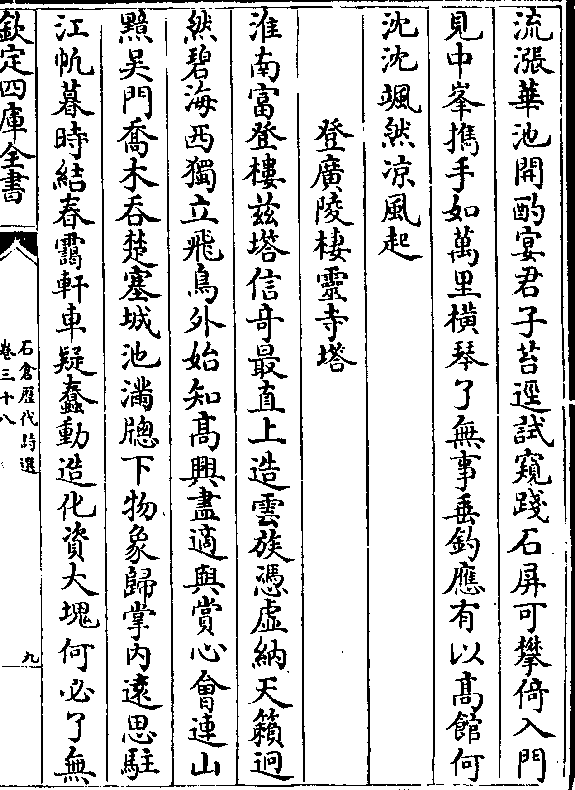 流漲華池開酌宴君子苔逕試窺踐石屏可攀倚入門
見中峯攜手如萬里橫琴了無事垂釣應有以髙館何
沈沈颯然凉風起
登廣陵棲靈寺塔
淮南富登樓兹塔信奇最直上造雲族憑虛納天籟迥
然碧海西獨立飛鳥外始知髙興盡適與賞心㑹連山
黯吳門喬木吞楚塞城池滿牕下物象歸掌內逺思駐
江帆暮時結春靄軒車疑蠢動造化資大塊何必了無
欽定四庫全書
石倉歷代詩選
卷三十八
九